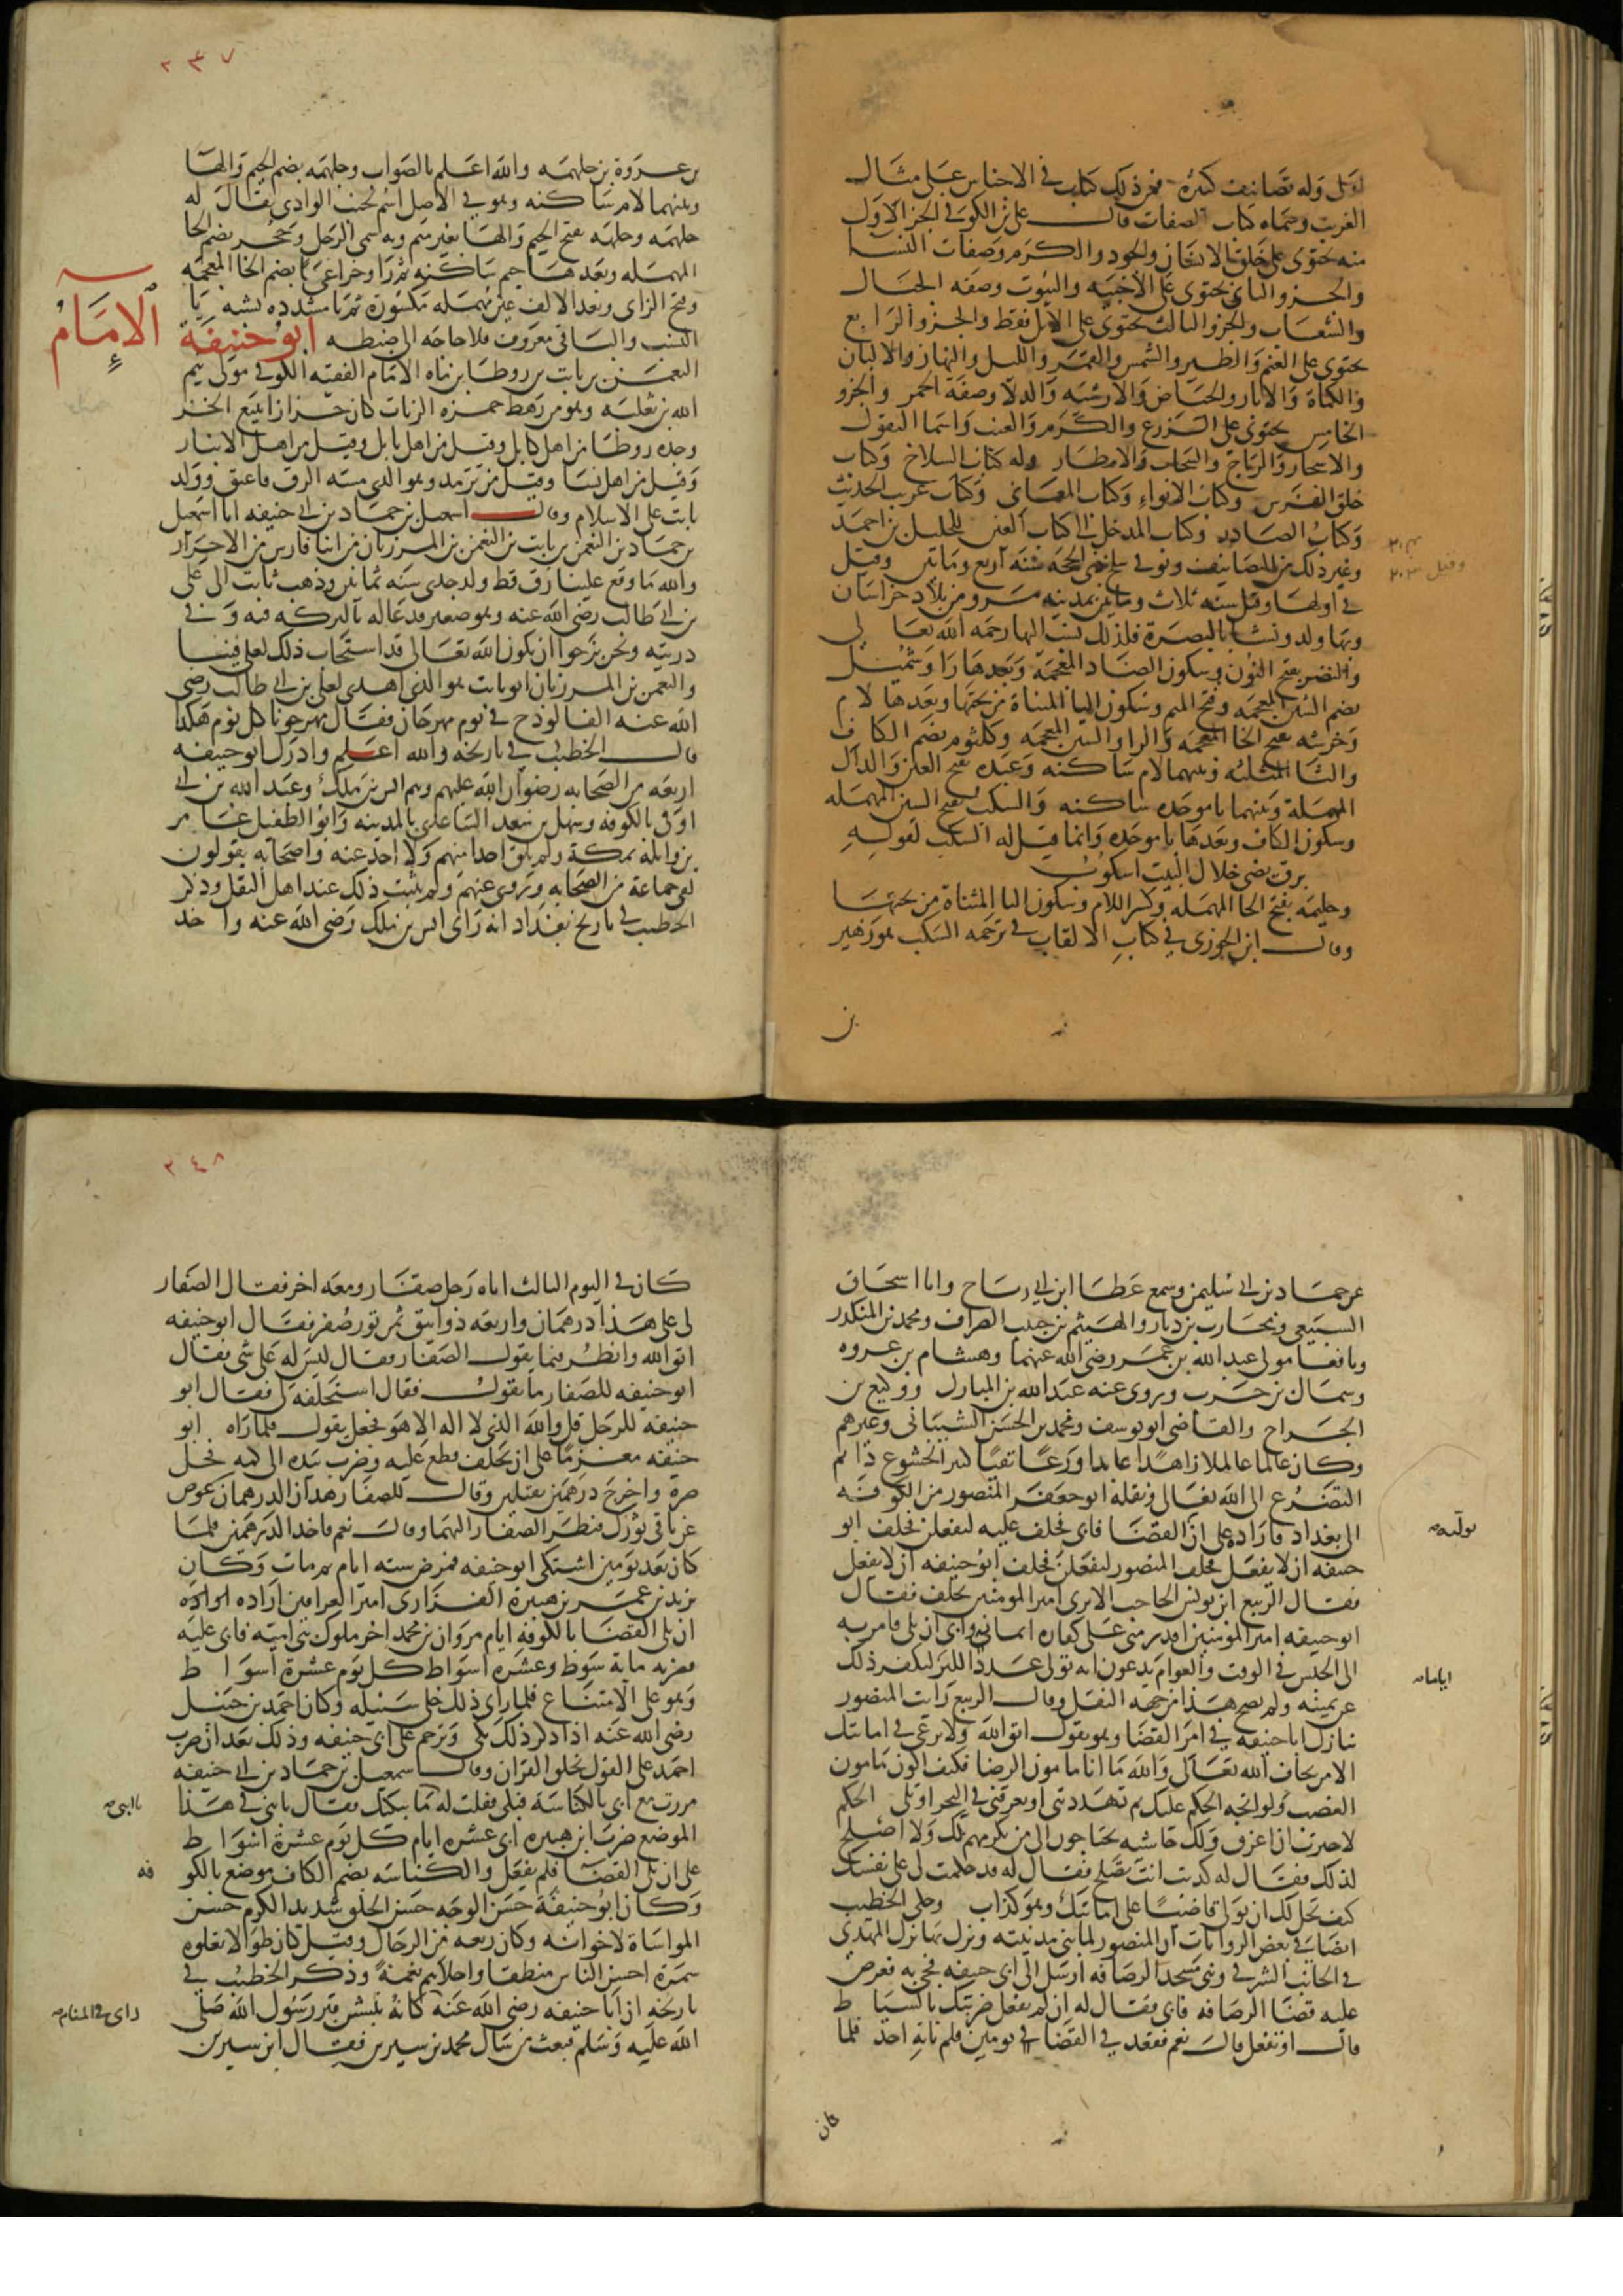 اوئل وله تصانيف كثيرة فمن ذلك كتاب في الاجناس على مثال
الغريب وسماه كتاب الصفات قال على بن الكوفي الجزء الاول
منه يحتوى على خلق الانسان والجود والكرم وصفات النسا
والجزو الثاني يحتوى على الاخبيه والبيوت وصفه الجبال
والشعاب والجزو الثالث يحتوى على الابل فقط والجزو الرابع
يحتوى على الغنم والطير والشمس والقمر والليل والنهار والالبان
والكماة والابار والحياض والارشيه والدلا وصفة الخمر والجزو
الخامس يحتوى على الزرع والكرم والعنب واسما البقول
والاشجار والرياح والسحاب والامطار وله كتاب السلاح وكتاب
خلق الفرس وكتاب الانواء وكتاب المعاني وكتاب غريب الحديث
وكتاب المصادر وكتاب المدخل الى كتاب العين للخليل بن احمد
وغير ذلك من التصانيف وتوفى سلخ ذى الحجه سنة اربع ومايتين وقيل
في اولها وقيل سنه ثلاث ومايتين بمدينه مرو من بلاد خراسان
وبها ولد ونشا بالبصرة فلذلك نسب اليها رحمه الله تعالى
والنضر بفتح النون وسكون الضاد المعجمة وبعدها را وشميل
بضم الشين المعجمه وفتح الميم وسكون اليا المثناة من تحتها وبعدها لام
وخرشه بفتح الخا المعجمه والرا والشين المعجمه وكلثوم بضم الكاف
والثا المثلثه وبينهما لام ساكنه وعبده بفتح العين والدال
المهملة وبينهما با موحده ساكنه والسكب بفتح السين المهمله
وسكون الكاف وبعدها با موحده وانما قيل له السكب لقوله
برق يضى خلال البيت اسكوب
وحليمه بفتح الحا المهمله وكسر اللام وسكون اليا المثناة من تحتها
وقال ابن الجوزى في كتاب الالقاب في ترجمه السكب هو زهير
بن
٢٣٧
بن عروة بن جلهمه والله اعلم بالصواب وجلهمه بضم الجيم والها
وبينهما لام ساكنه وهو في الاصل اسم لجنب الوادى يقال له
جلهمه وجلهه بفتح الجيم والها بغير ميم وبه سمى الرجل وحجر بضم الحا
المهمله وبعدها جيم ساكنه ثم را وخزاعي بضم الخا المعجمه
وفتح الزاى وبعد الالف عين مهمله مكسورة ثم يا مشدده تشبه يا
النسب والباقى معروف فلا حاجه الى ضبطه ابو حنيفة
الامام
النعمن بن ثابت بن زوطا بن ماه الامام الفقيه الكوفي مولى تيم
الله بن ثعلبه وهو من رهط حمزه الزيات كان خزازا يبيع الخز
وجده زوطا من اهل كابل وقيل من اهل بابل وقيل من اهل الانبار
وقيل من اهل نسا وقيل من ترمد وهو الذى مسه الرق فاعتق وولد
ثابت على الاسلام وقال اسمعيل بن حماد بن ابي حنيفه انا اسمعيل
بن حماد بن النعمن بن ثابت بن النعمن بن المرزبان من ابنا فارس من الاحرار
والله ما وقع علينا رق قط ولد جدى سنه ثمانين وذهب ثابت الى على
بن ابي طالب رضى الله عنه وهو صغير فدعا له بالبركه فيه وفى
دريته ونحن نرجوا ان يكون الله تعالى قد استجاب ذلك لعلى فينا
والنعمن بن المرزبان ابو ثابت هو الذى اهدى لعلى بن ابي طالب رضى
الله عنه الفالوذج في يوم مهرجان فقال مهرجونا كل يوم هكذا
قال الخطيب في تاريخه والله اعلم وادرك ابو حنيفه
اربعه من الصحابه رضوان الله عليهم وهم انس بن ملك وعبد الله بن ابي
اوفى بالكوفه وسهل بن سعد الساعدى بالمدينه وابو الطفيل عامر
بن واثله بمكة ولم يلق احدا منهم ولا اخذ عنه واصحابه يقولون
لقى جماعة من الصحابه وروى عنهم ولم يثبت ذلك عند اهل النقل وذكر
الخطيب في تاريخ بغداد انه راى انس بن ملك رضى الله عنه واخذ
عن حماد بن ابي سليمن وسمع عطا ابن ابي رباح وابا اسحاق
السبيعى ومحارب بن دثار والهيثم بن حبيب الصراف ومحمد بن المنكدر
ونافعا مولى عبد الله بن عمر رضى الله عنهما وهشام بن عروه
وسماك بن حرب وروى عنه عبد الله بن المبارك ووكيع بن
الجراح والقاضى ابو يوسف ومحمد بن الحسن الشيبانى وغيرهم
وكان عالما عاملا زاهدا عابدا ورعا تقيا كثير الخشوع دائم
التضرع الى الله تعالى ونقله ابو جعفر المنصور من الكوفه
الى بغداد فاراده على ان القضا فابى فحلف عليه ليفعلن فحلف ابو
حنيفه ان لا يفعل فحلف المنصور ليفعلن فحلف ابو حنيفه ان لا يفعل
فقال الربيع ابن يونس الحاجب الا ترى امير المومنين يحلف فقال
ابو حنيفه امير المومنين اقدر منى على كفاره ايمانه وابى ان يلى فامر به
الى الحبس في الوقت والعوام يدعون انه تولى عدد اللبن ليكفر ذلك
عن يمينه ولم يصح هذا من جهه النقل وقال الربيع رايت المنصور
ينازل ابا حنيفه في امر القضا وهو يقول اتق الله ولا ترعى في امانتك
الا من يخاف الله تعالى والله ما انا مامون الرضا فكيف اكون مامون
الغضب ولو اتجه الحكم عليك ثم تهددتنى ان تغرقنى في البحر او تلى الحكم
لاخترت ان اغرق ولك حاشيه يحتاجون الى من يكرمهم لك ولا اصلح
لذلك فقال له كدبت انت تصلح فقال له قد حكمت لى على نفسك
كيف يحل لك ان تولى قاضيا على امانتك وهو كذاب وحكى الخطيب
ايضا في بعض الروايات ان المنصور لما بنى مدينته ونزل بها نزل المهدى
في الجانب الشرقى وبنى مسجد الرصافه ارسل الى ابي حنيفه فجى به فعرض
عليه قضا الرصافه فابى فقال له ان لم تفعل ضربتك بالسياط
قال او تفعل قال نعم فقعد في القضا يومين فلم ياته احد فلما
كان
توليه
اياما
٢٤٨
كان في اليوم الثالث اتاه رجل صفار ومعه اخر فقال الصفار
لى على هذا درهمان واربعه دوانيق ثمن تور صفر فقال ابو حنيفه
اتق الله وانظر فيما يقول الصفار فقال ليس له على شى فقال
ابو حنيفه للصفار ما تقول فقال استحلفه لى فقال ابو
حنيفه للرجل قل والله الذى لا اله الا هو فجعل يقول فلما راه ابو
حنيفه معتزما على ان يحلف قطع عليه وضرب بيده الى كمه فحل
صرة واخرج درهمين ثقيلين وقال للصفار هذان الدرهمان عوض
عن باقى تورك فنظر الصفار اليهما وقال نعم فاخذ الدرهمين فلما
كان بعد يومين اشتكى ابو حنيفه فمرض سته ايام ثم مات وكان
يزيد بن عمر بن هبيرة الفزارى امير العراقين اراده
ان يلى القضا بالكوفة ايام مروان بن محمد اخر ملوك بنى امية فابى عليه
فضربه مايه سوط وعشره اسواط كل يوم عشرة اسواط
وهو على الامتناع فلما راى ذلك خلى سبيله وكان احمد بن حنبل
رضى الله عنه اذا ذكر ذلك بكى وترحم على ابي حنيفه وذلك بعد ان ضرب
احمد على القول بخلق القران وقال اسمعيل بن حماد بن ابي حنيفه
مررت مع ابي بالكناسه فبكى فقلت له ما يبكيك فقال يا بنى في هذا
يا ابتى
الموضع ضرب ابن هبيره ابي عشره ايام كل يوم عشرة اسواط
على ان يلى القضا فلم يفعل والكناسه بضم الكاف موضع بالكوفه
وكان ابو حنيفة حسن الوجه حسن الجلو شديد الكرم حسن
المواساة لاخوانه وكان ربعه من الرجال وقيل كان طوالا تعلوه
سمرة احسن الناس منطقا واحلاهم نغمة وذكر الخطيب في
تاريخه ان ابا حنيفه رضى الله عنه كانه ينبش قبر رسول الله صلى
راى في المنام
الله عليه وسلم فبعث من سال محمد بن سيرين فقال ابن سيرين